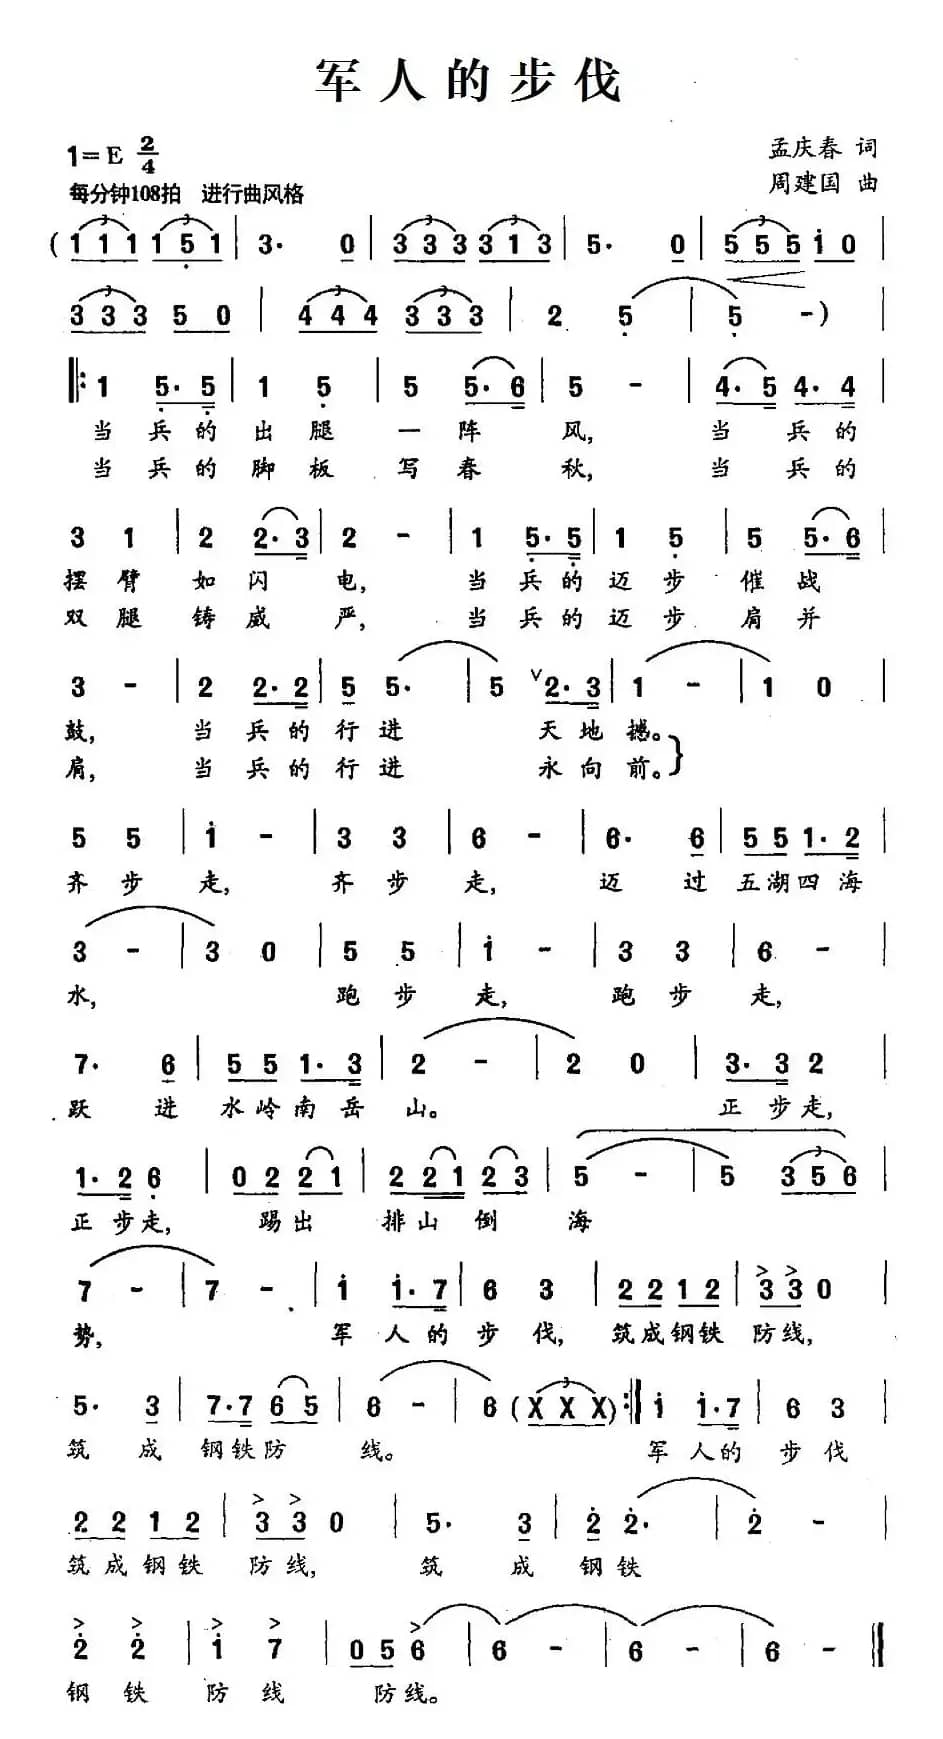 军人的步伐
1=E 2/4
孟庆春 词
每分钟108拍 进行曲风格
周建国 曲
( 1 1 1 1 5 1 | 3· 0 | 3 3 3 3 1 3 | 5· 0 | 5 5 5 i 0 |
3 3 3 5 0 | 4 4 4 3 3 3 | 2 5 | 5 - ) |
‖: 1 5· 5 | 1 5 | 5 5· 6 | 5 - | 4· 5 4· 4 |
当 兵 的 出 腿 一 阵 风, 当 兵 的
当 兵 的 脚 板 写 春 秋, 当 兵 的
3 1 | 2 2· 3 | 2 - | 1 5· 5 | 1 5 | 5 5· 6 |
摆 臂 如 闪 电, 当 兵 的 迈 步 催 战
双 腿 铸 威 严, 当 兵 的 迈 步 肩 并
3 - | 2 2· 2 | 5 5· | 5 ∨ 2· 3 | 1 - | 1 0 |
鼓, 当 兵 的 行 进 天 地 撼。
肩, 当 兵 的 行 进 永 向 前。}
5 5 | i - | 3 3 | 6 - | 6· 6 | 5 5 1· 2 |
齐 步 走, 齐 步 走, 迈 过 五 湖 四 海
3 - | 3 0 | 5 5 | i - | 3 3 | 6 - |
水, 跑 步 走, 跑 步 走,
7· 6 | 5 5 1· 3 | 2 - | 2 0 | 3· 3 2 |
跃 进 水 岭 南 岳 山。 正 步 走,
1· 2 6 | 0 2 2 1 | 2 2 1 2 3 | 5 - | 5 3 5 6 |
正 步 走, 踢 出 排 山 倒 海
7 - | 7 - | i i· 7 | 6 3 | 2 2 1 2 | 3 3 0 |
势, 军 人 的 步 伐, 筑 成 钢 铁 防 线,
5· 3 | 7· 7 6 5 | 6 - | 6 ( X X X ) :‖ i i· 7 | 6 3 |
筑 成 钢 铁 防 线。 军 人 的 步 伐
2 2 1 2 | 3 3 0 | 5· 3 | 2 2· | 2 - |
筑 成 钢 铁 防 线, 筑 成 钢 铁
2 2 | i 7 | 0 5 6 | 6 - | 6 - | 6 - ‖
钢 铁 防 线 防 线。